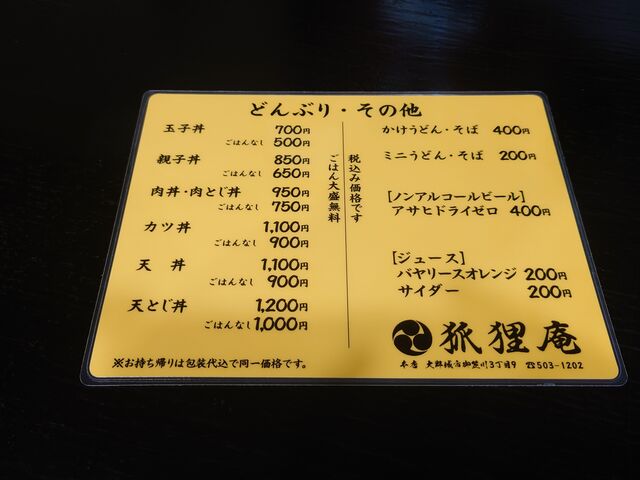 どんぶり・その他
玉子丼 700円
ごはんなし 500円
親子丼 850円
ごはんなし 650円
肉丼・肉とじ丼 950円
ごはんなし 750円
カツ丼 1,100円
ごはんなし 900円
天 丼 1,100円
ごはんなし 900円
天とじ丼 1,200円
ごはんなし 1,000円
※お持ち帰りは包装代込で同一価格です。
税込み価格です
ごはん大盛無料
かけうどん・そば 400円
ミニうどん・そば 200円
[ノンアルコールビール]
アサヒドライゼロ 400円
[ジュース]
バヤリースオレンジ 200円
サイダー 200円
狐狸庵
本店 大野城市御笠川3丁目9 ☎503-1202